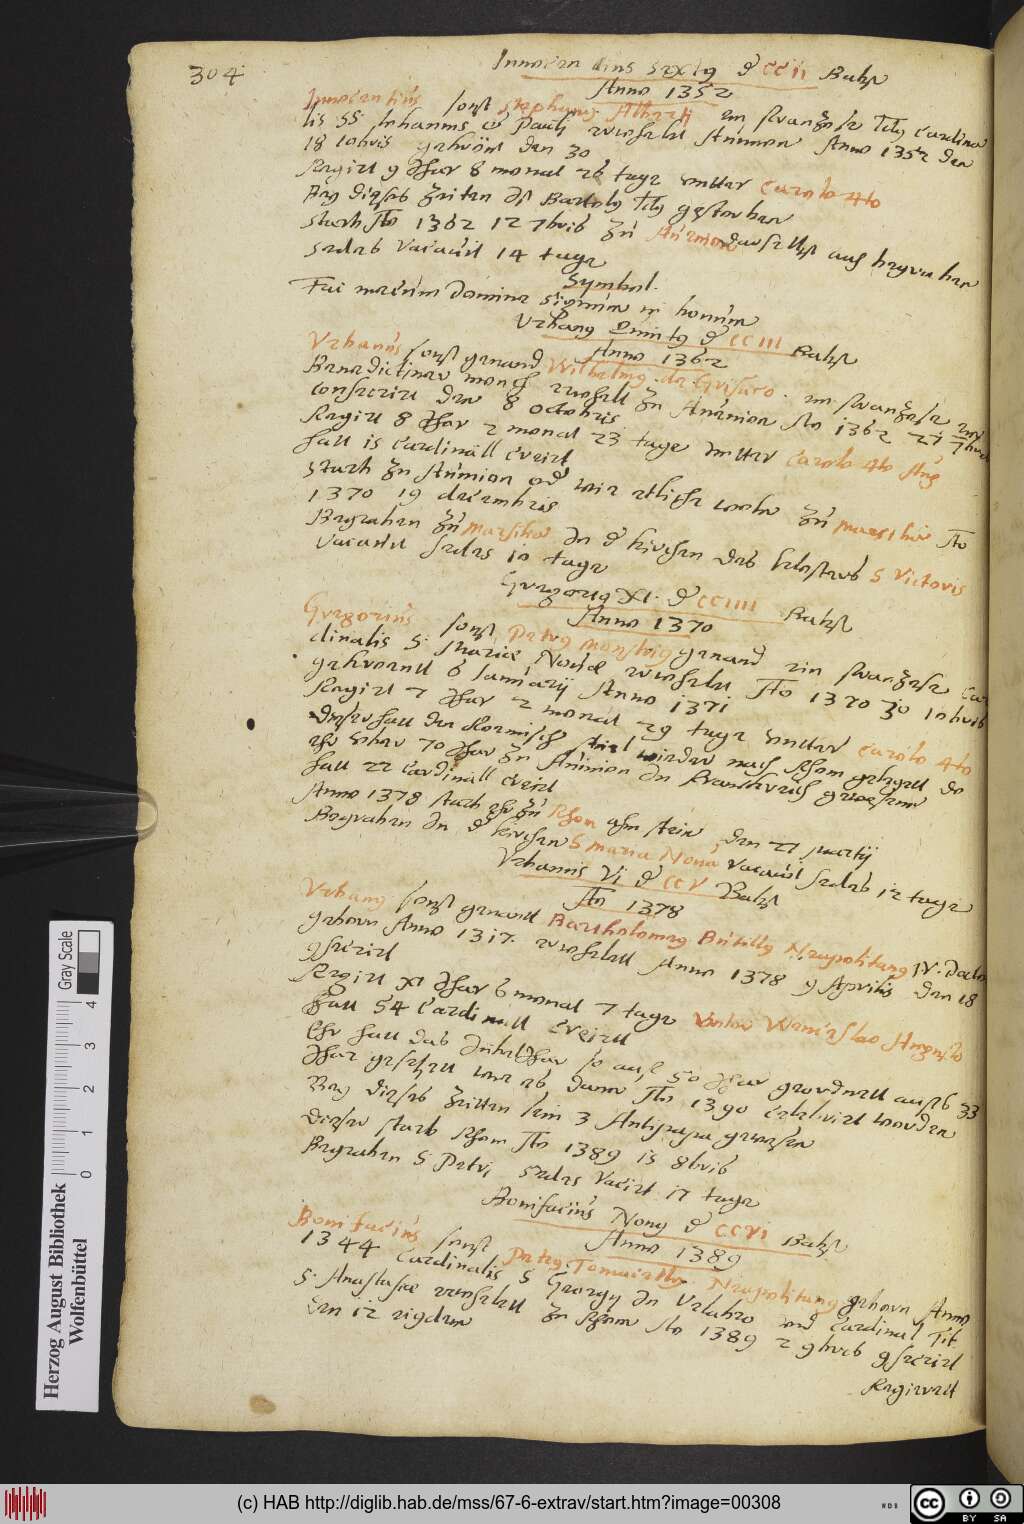 304
Innocentius Sextus der CCII Babst
Anno 1352
Innocentius sonst Stephanus Alberti ein frantzose Titus Cardina
lis SS. Johannis et Pauli erwehlet Avinion Anno 1352 den
18 10bris gekrönt den 30
Regirt 9 Jhar 8 monat 26 tage unter Carolo 4to
Bey dieses Zeiten ist Bartolus Itus gestorben
Starb Ao 1362 12 7bris zu Avinion daselbst auch begraben
Sedes vacavit 14 tage
Symbol.
Fac mecum Domine signum in bonum
Urbanus Quintus der CCIII Babst
Anno 1362
Urbanus sonst genand Wilhelmus de Grisaco. ein frantzose
Benedictiner monch erwehlt zu Avinion Ao 1362 27 7bris
Consecrirt den 8 Octobris
Regirt 8 Jhar 2 monat 23 tage unter Carolo 4to Aug
hatt 15 Cardinäll creirt
Starb zu Avinion oder wie etliche wollen zu Marsilien Ao
1370 19 decembris
Begraben zu Marsilien in der kirchen des klosters S Victoris
Vacavit sedes 10 tage
Gregorius XI. der CCIIII Babst
Anno 1370
Gregorius sonst Petrus monstrius genand ein frantzose Car
dinalis S. Mariae Novae erwehlet Ao 1370 30 10bris
gekroenett 6 Januarii Anno 1371
Regirt 7 Jhar 2 monat 29 tage unter Carolo 4to
Dieser hatt den Römisch stuel wieder nach Rhom gelegett do
ehr uber 70 Jhar zu Avinion in Franckreich gewesenn
hatt 22 Cardinäll creirt
Anno 1378 starb ehr zu Rhom ahm stein, den 27 Martii
Begraben in der kirchen S Maria Nova vacavit sedes 12 tage
Urbanus VI der CCV Babst
Ao 1378
Urbanus sonst genandt Bartholomeus Butillus Neapolitanus
geborn Anno 1317. erwehlett Anno 1378 9 Aprilis den 18
Consecrirt
Regirt XI Jhar 6 monat 7 tage unter Wenceslao Augusto
hatt 54 Cardinall creirt
Ehr hatt das Jubel Jhar so auf 50 Jhar geordnett aufs 33
Jhar gesetzett wie es, dann Ao 1390 celebrirt worden
Bey dieses Zeitten sein 3 Antipapa gewesen
Dieser starb Rhom Ao 1389 15 8bris
Begraben S Petri Sedes vacirt 17 tage
Bonifacius Nonus der CCVI Babst
Anno 1389
Bonifacius sonst Petrus Tomacellus Neapolitanus geborn Anno
1344 Cardinalis S Georgii in Velabro und Cardinal Tit
S. Anastasiae erwehlett zu Rhom Ao 1389 2 9bris Consecrirt
den 12 eigdem
Regierett
Gray Scale
0 1 2 3 4
Herzog August Bibliothek
Wolfenbüttel
(c) HAB http://diglib.hab.de/mss/67-6-extrav/start.htm?image=00308
WDB
cc BY SA